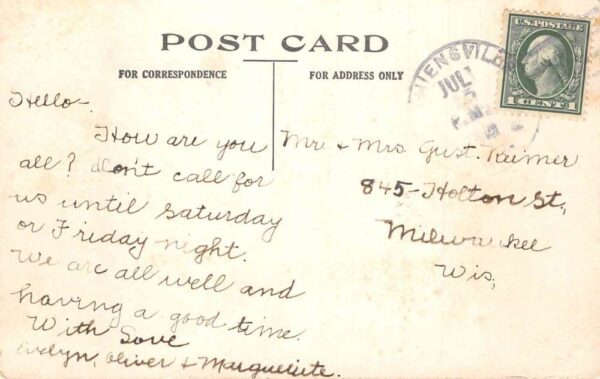 POST CARD
FOR CORRESPONDENCE
FOR ADDRESS ONLY
Hello-
How are you
all? don't call for
us until Saturday
or Friday night.
We are all well and
having a good time.
With Love
Evelyn, Oliver & Marguerite.
Mr & Mrs Gust. Reimer
845-Holton St,
Milwaukee
Wis,
JUL
U.S. POSTAGE
1 CENT 1